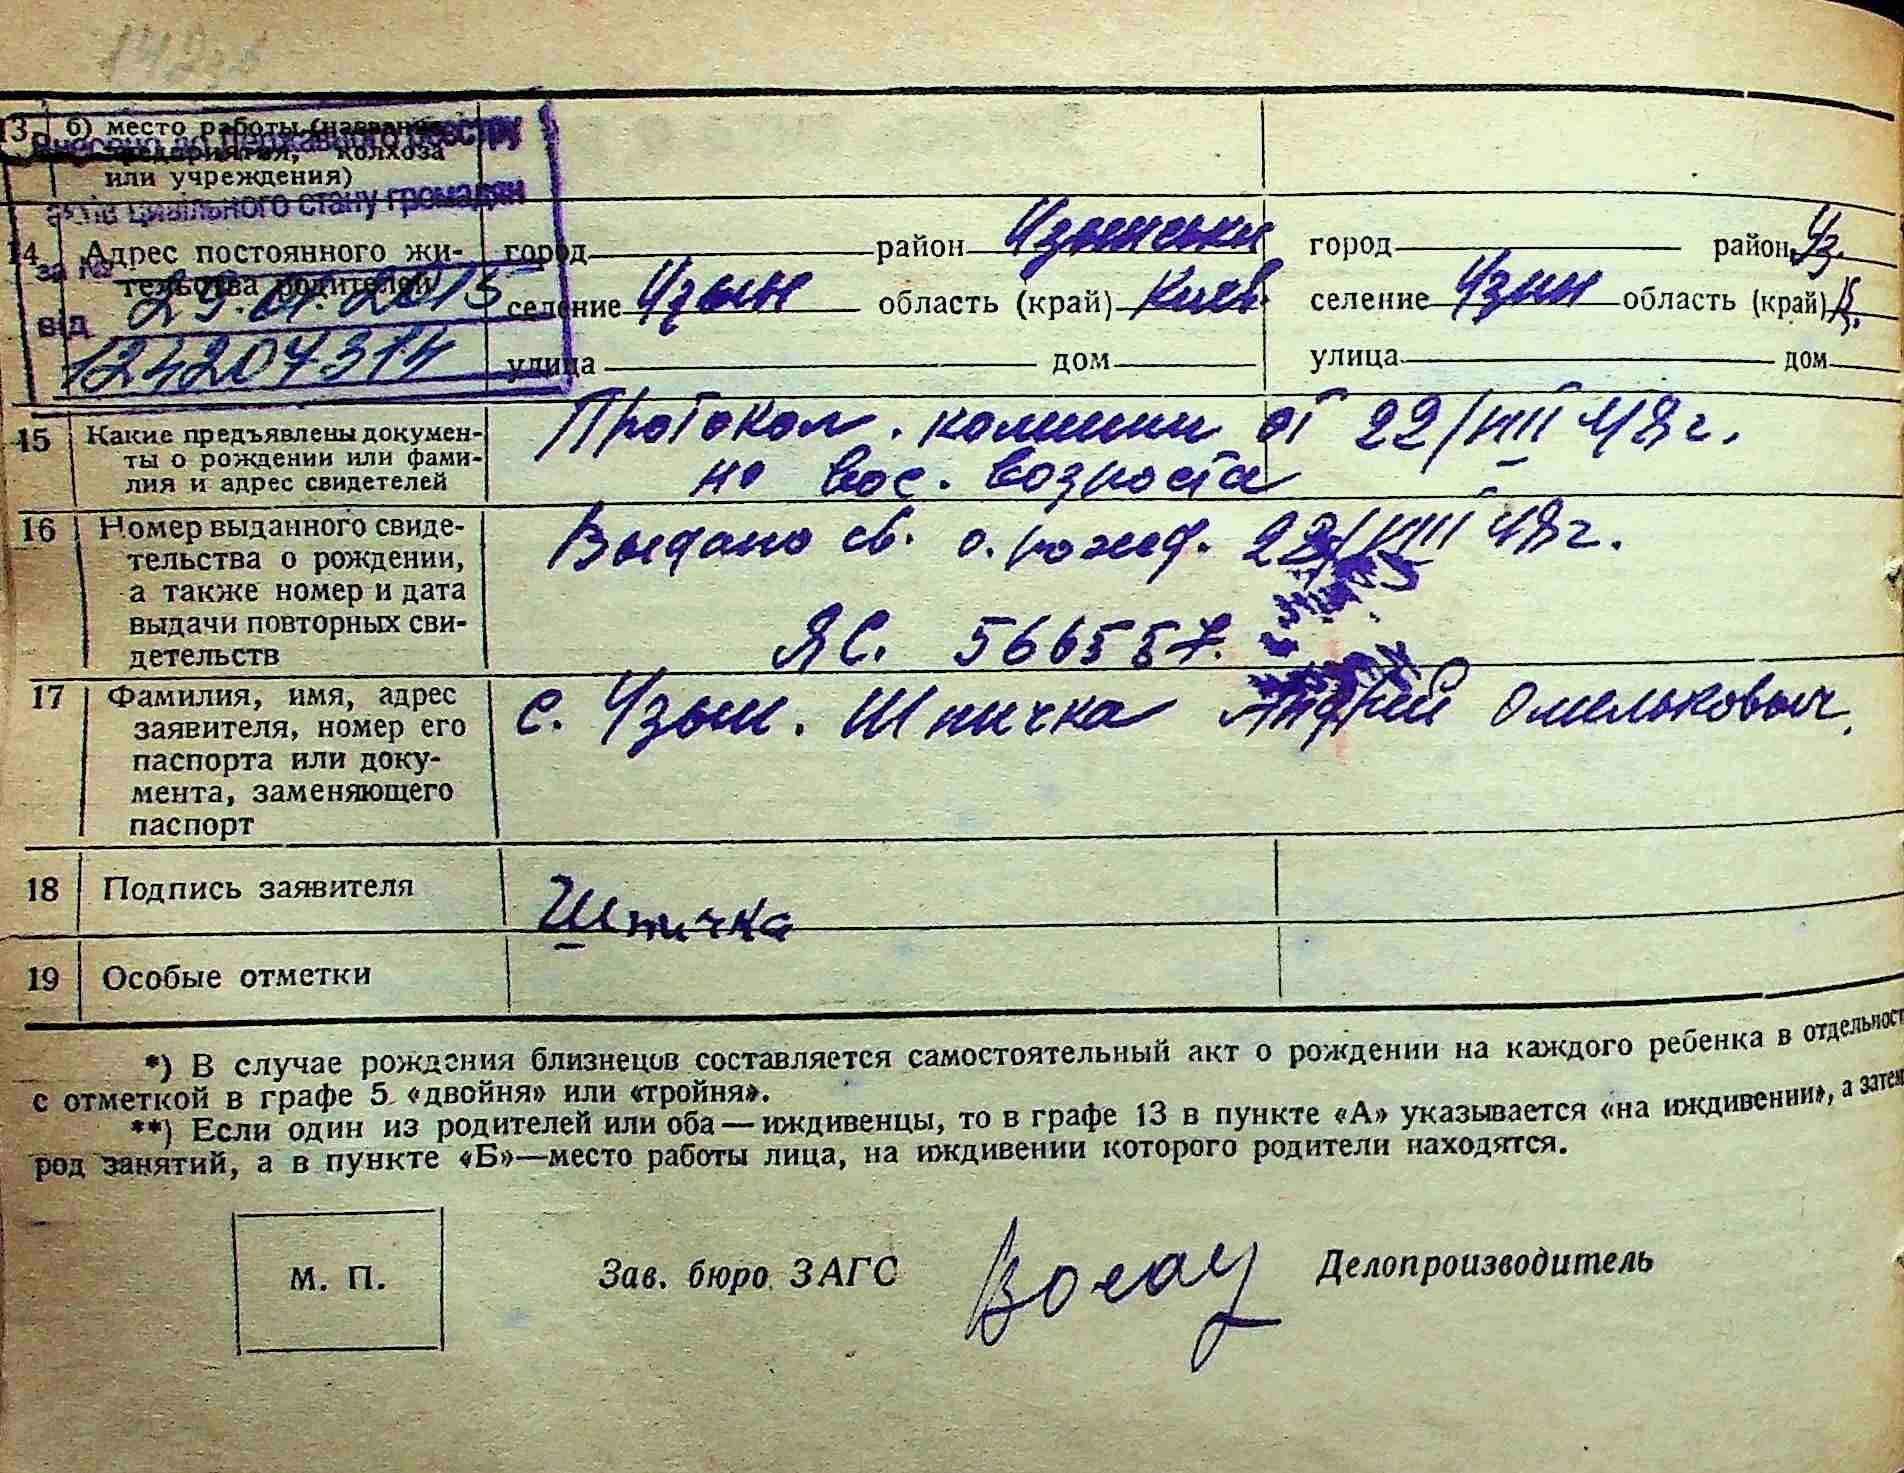 13 б) место работы (название
предприятия, колхоза
или учреждения)
Внесено до Державного реєстру
актів цивільного стану громадян
за №
від 29.01.2015
124207314
14 Адрес постоянного жи-
тельства родителей
город район Узинський
селение Узын область (край) Киев.
улица дом
город район Уз.
селение Узин область (край) К.
улица дом
15 Какие предъявлены докумен-
ты о рождении или фами-
лия и адрес свидетелей
Протокол. комиии от 22/VIII 48 г.
по вос. возроста
16 Номер выданного свиде-
тельства о рождении,
а также номер и дата
выдачи повторных сви-
детельств
Выдано св. о. рожд. /VIII 48 г.
ЯС. 566557.
17 Фамилия, имя, адрес
заявителя, номер его
паспорта или доку-
мента, заменяющего
паспорт
с. Узын. Шпичка Андрий Омелькович.
18 Подпись заявителя
Шпичка
19 Особые отметки
*) В случае рождения близнецов составляется самостоятельный акт о рождении на каждого ребенка в отдельност
с отметкой в графе 5 «двойня» или «тройня».
**) Если один из родителей или оба — иждивенцы, то в графе 13 в пункте «А» указывается «на иждивении», а затем
род занятий, а в пункте «Б»—место работы лица, на иждивении которого родители находятся.
М. П.
Зав. бюро ЗАГС
Делопроизводитель